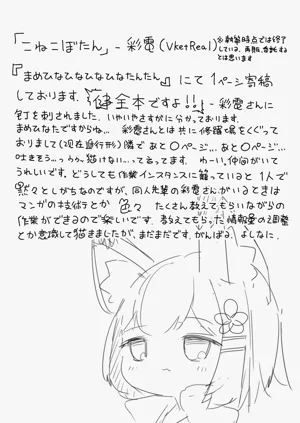 「こねこぼたん」- 彩雹(VketReal)
※執筆時点では終了
している。再販、委託する
とは思います
『まめひなひなひなひなたんたん』にて1ページ寄稿
しております。健全本ですよ!!」- 彩雹さんに
釘を刺されました。いやいやさすがに分かっております。
まめひなたですからね… 彩雹さんとは共に修羅場をくぐって
おりまして(現在進行形)隣で あと〇ページ…、あと〇ページ…
吐きそう…っうう。描けない…って言ってます。 わーい、仲間がいて
うれしいです。どうしても作業インスタンスに籠っていると1人で
黙々としがちなのですが、同人先輩の彩雹さんがいるときは
マンガの技術とか色々 たくさん教えてもらいながらの
作業ができるので楽しいです。教えてもらった情報量の調整
とか意識して描きましたが、まだまだです。がんばる。よしなに。